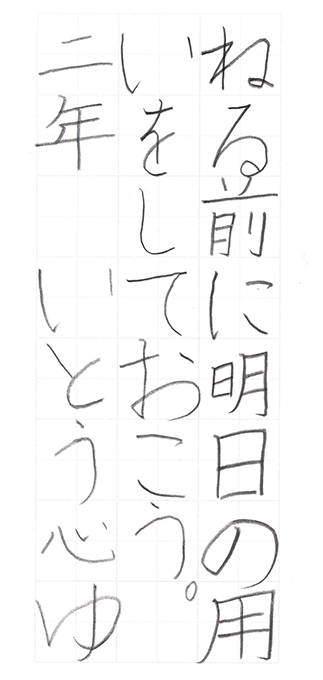 ねる前に明日の用
いをしておこう。
二年 いとう心ゆ